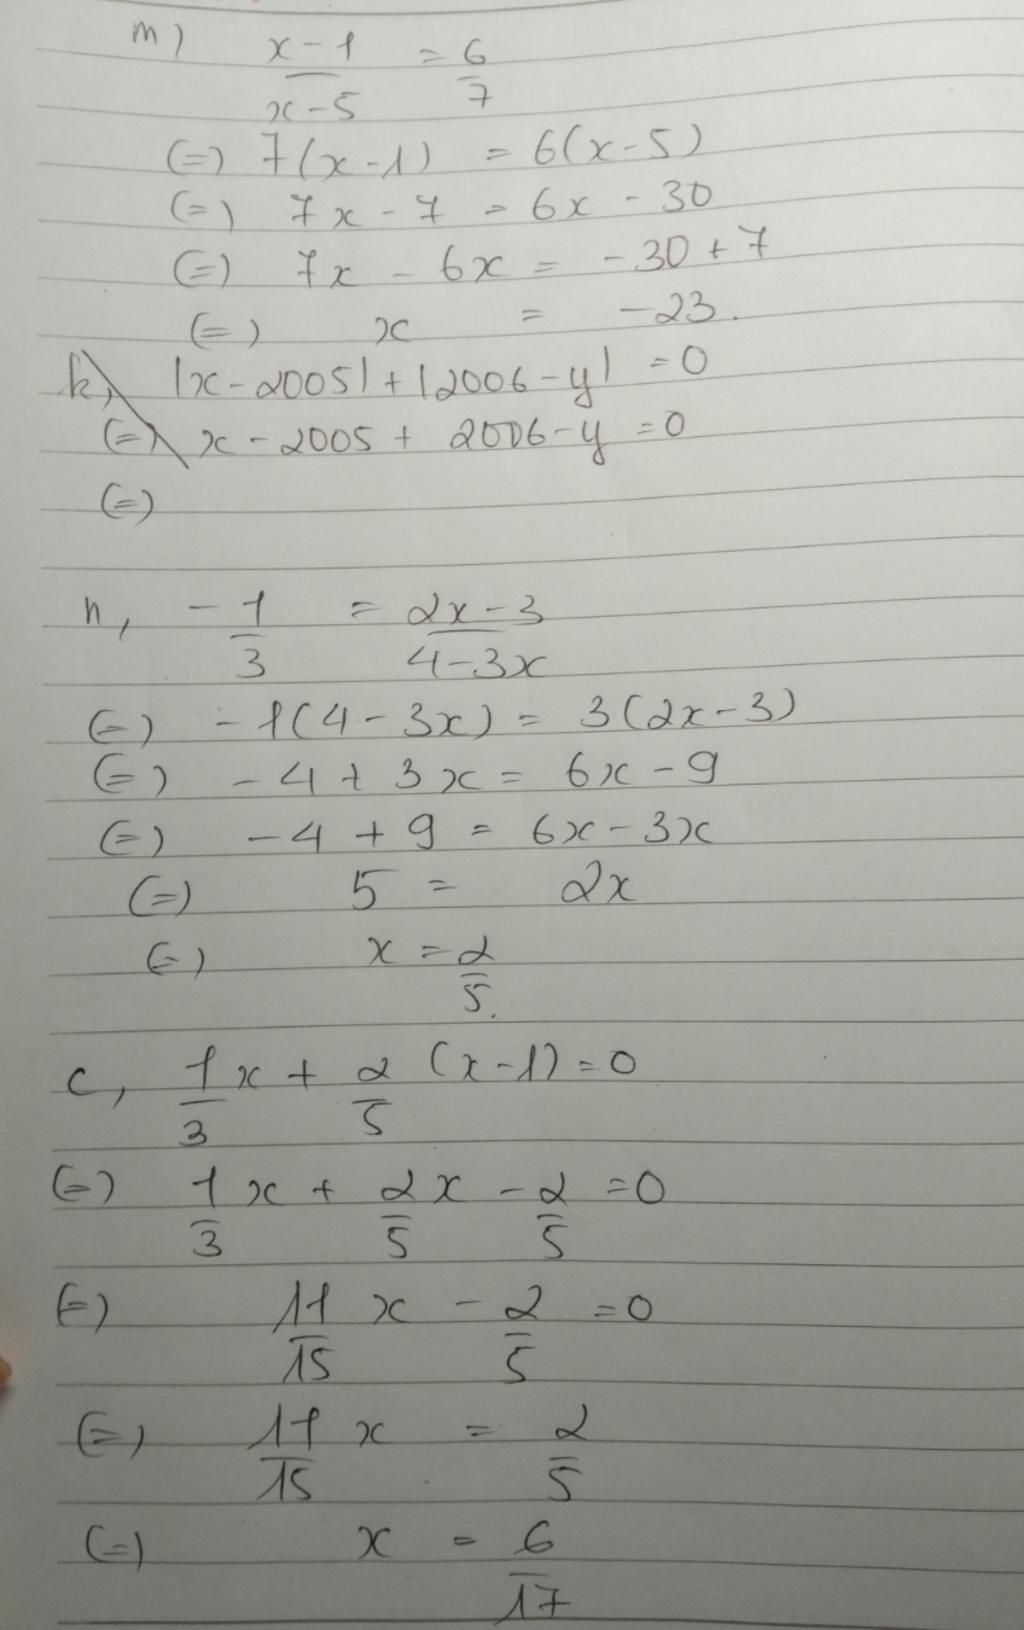 m) x-1/x-5 = 6/7
(=) 7(x-1) = 6(x-5)
(=) 7x - 7 = 6x - 30
(=) 7x - 6x = -30 + 7
(=) x = -23.
k, |x-2005| + |2006-y| = 0
(=) x - 2005 + 2006 - y = 0
(=)
n, -1/3 = 2x-3/4-3x
(=) -1(4 - 3x) = 3(2x-3)
(=) -4 + 3x = 6x - 9
(=) -4 + 9 = 6x - 3x
(=) 5 = 2x
(=) x = 2/5.
c, 1/3 x + 2/5 (x-1) = 0
(=) 1/3 x + 2/5 x - 2/5 = 0
(=) 11/15 x - 2/5 = 0
(=) 11/15 x = 2/5
(=) x = 6/17